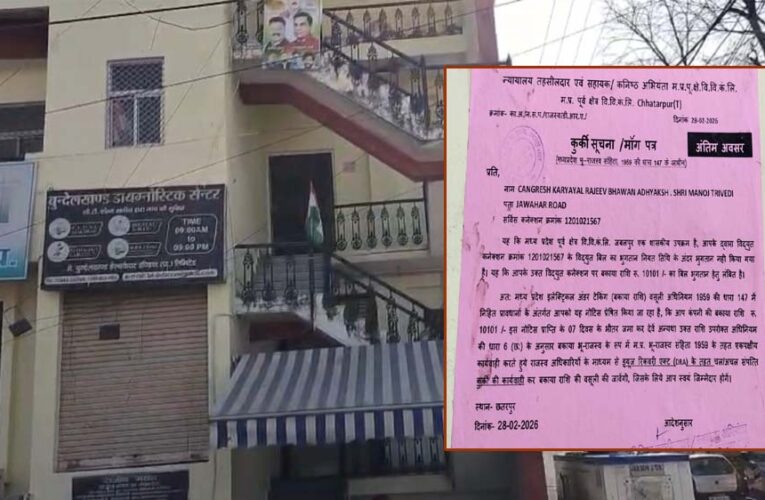 बुन्देलखण्ड डायग्नोस्टिक सेन्टर
TIME
09:00AM
to
09:00 PM
न्यायालय तहसीलदार एवं सहायक/ कनिष्ठ अभियंता म.प्र.पू.क्षे.वि.वि.कं.लि.
म.प्र. पूर्व क्षेत्र वि.वि.कं.लि. Chhatarpur(T)
दिनांक 28-02-2026
कुर्की सूचना /माँग पत्र
अंतिम अवसर
(मध्यप्रदेश भू-राजस्व संहिता, 1959 की धारा 147 के अधीन)
प्रति,
नाम CANGRESH KARYAYAL RAJEEV BHAWAN ADHYAKSH : SHRI MANOJ TRIVEDI
पता JAWAHAR ROAD
सर्विस कनेक्शन क्रमांक 1201021567
यह कि मध्य प्रदेश पूर्व क्षेत्र वि.वि.कं.लि. जबलपुर एक शासकीय उपक्रम है, आपके द्वारा विद्युत
कनेक्शन क्रमांक 1201021567 के विद्युत बिल का भुगतान नियत तिथि के अंदर भुगतान नही किया गया
है। यह कि आपके उक्त विद्युत कनेक्शन पर बकाया राशि रु. 10101 /- का बिल भुगतान हेतु लंबित है।
अतः मध्य प्रदेश इलेक्ट्रिकल अंडर टेकिंग (बकाया राशि) वसूली अधिनियम 1959 की धारा 147 में
निहित प्रावधानों के अंतर्गत आपको यह नोटिस प्रेषित किया जा रहा है, कि आप कंपनी की बकाया राशि रु.
10101 /- इस नोटिस प्राप्ति के 07 दिवस के भीतर जमा कर देवें अन्यथा उक्त राशि उपरोक्त अधिनियम
की धारा 6 (छः) के अनुसार बकाया भू-राजस्व के रुप में म.प्र. भू-राजस्व संहिता 1959 के तहत एकपक्षीय
कार्यवाही करते हुये राजस्व अधिकारियों के माध्यम से ड्यूज रिकवरी एक्ट (DRA) के तहत चल/अचल संपत्ति
कुर्की की कार्यवाही कर बकाया राशि की वसूली की जावेगी, जिसके लिये आप स्वयं जिम्मेदार होगें।
स्थान- छतरपुर
दिनांक- 28-02-2026
आदेशनुसार